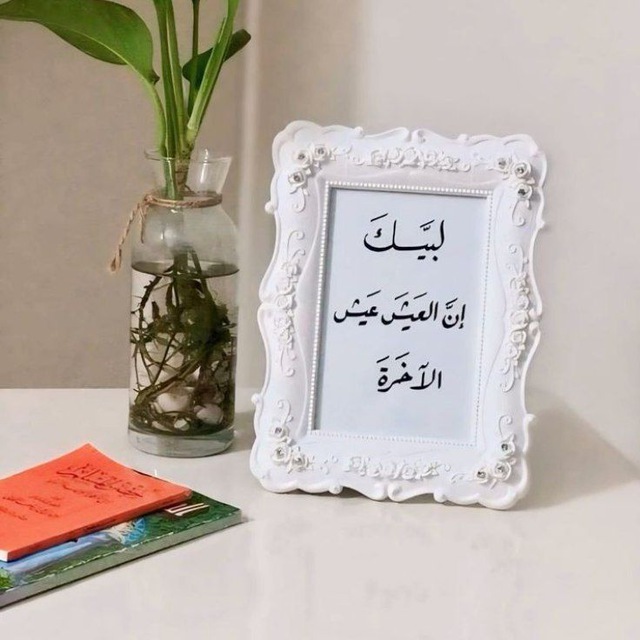 لبيَّـكَ
إنَّ العَيشَ عَيش
الآخَرةَ